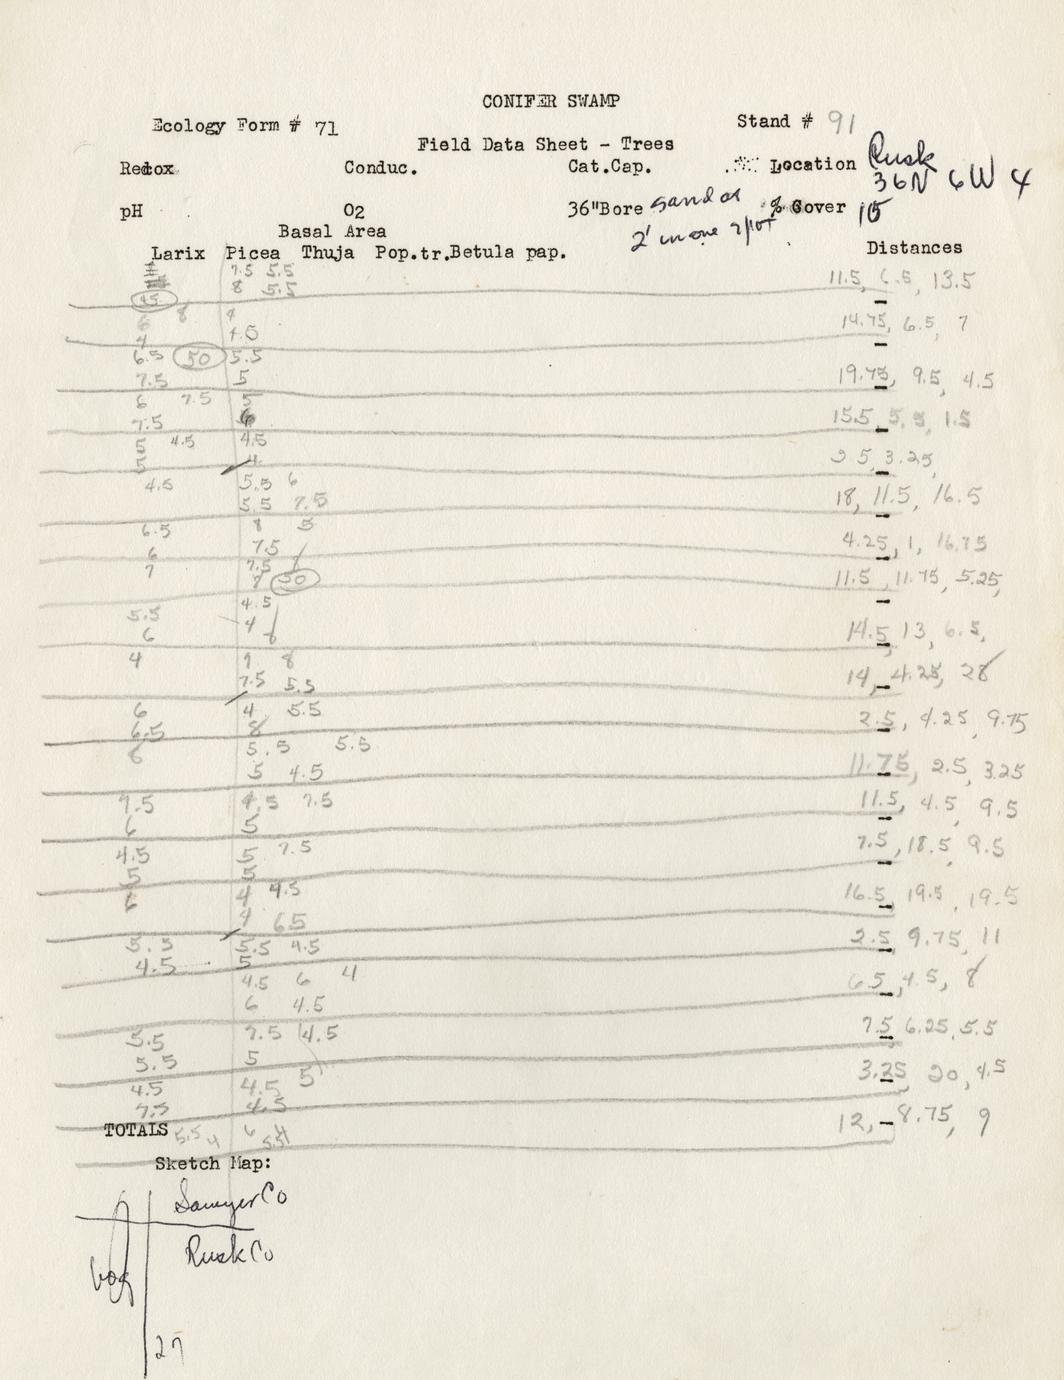 CONIFER SWAMP
Ecology Form # 71
Stand # 91
Field Data Sheet - Trees
Redox Conduc. Cat.Cap. Location Rusk
36N 6W 4
pH O2 36"Bore sand at % Cover 15
2' in one spot
Basal Area
Larix Picea Thuja Pop.tr.Betula pap. Distances
7.5 5.5
8 5.5 11.5, 6.5, 13.5
45
6 8 4
4 4.5 14.75, 6.5, 7
6.5 50 5.5
7.5 5 19.75, 9.5, 4.5
6 7.5 5
7.5 6 15.5, 5.5, 1.5
5 4.5 4.5
5 4 3.25,
4.5 5.5 6
5.5 7.5 18, 11.5, 16.5
6.5 8 5
6 7.5 4.25, 1, 16.75
7.5
7 7 50 11.5, 11.75, 5.25,
4.5
5.5 4 8
6 14.5, 13, 6.5,
4 9 8
7.5 5.5 14, 4.25, 28
6 4 5.5
6.5 8 2.5, 4.25, 9.75
6 5.5 5.5
5 4.5 11.75, 2.5, 3.25
7.5 4.5 7.5
6 5 11.5, 4.5, 9.5
4.5 5 7.5
5 5 7.5, 18.5, 9.5
6 4 4.5
4 6.5 16.5, 19.5, 19.5
5.5 5.5 4.5
4.5 5 2.5, 9.75, 11
4.5 6 4
6 4.5 6.5, 4.5, 8
5.5 7.5 4.5
5.5 5 7.5, 6.25, 5.5
4.5 4.5 5
7.5 4.5 3.25, 20, 4.5
TOTALS 5.5 4 6 4
5.5 12, 8.75, 9
Sketch Map:
Sawyer Co
Rusk Co
bog
27